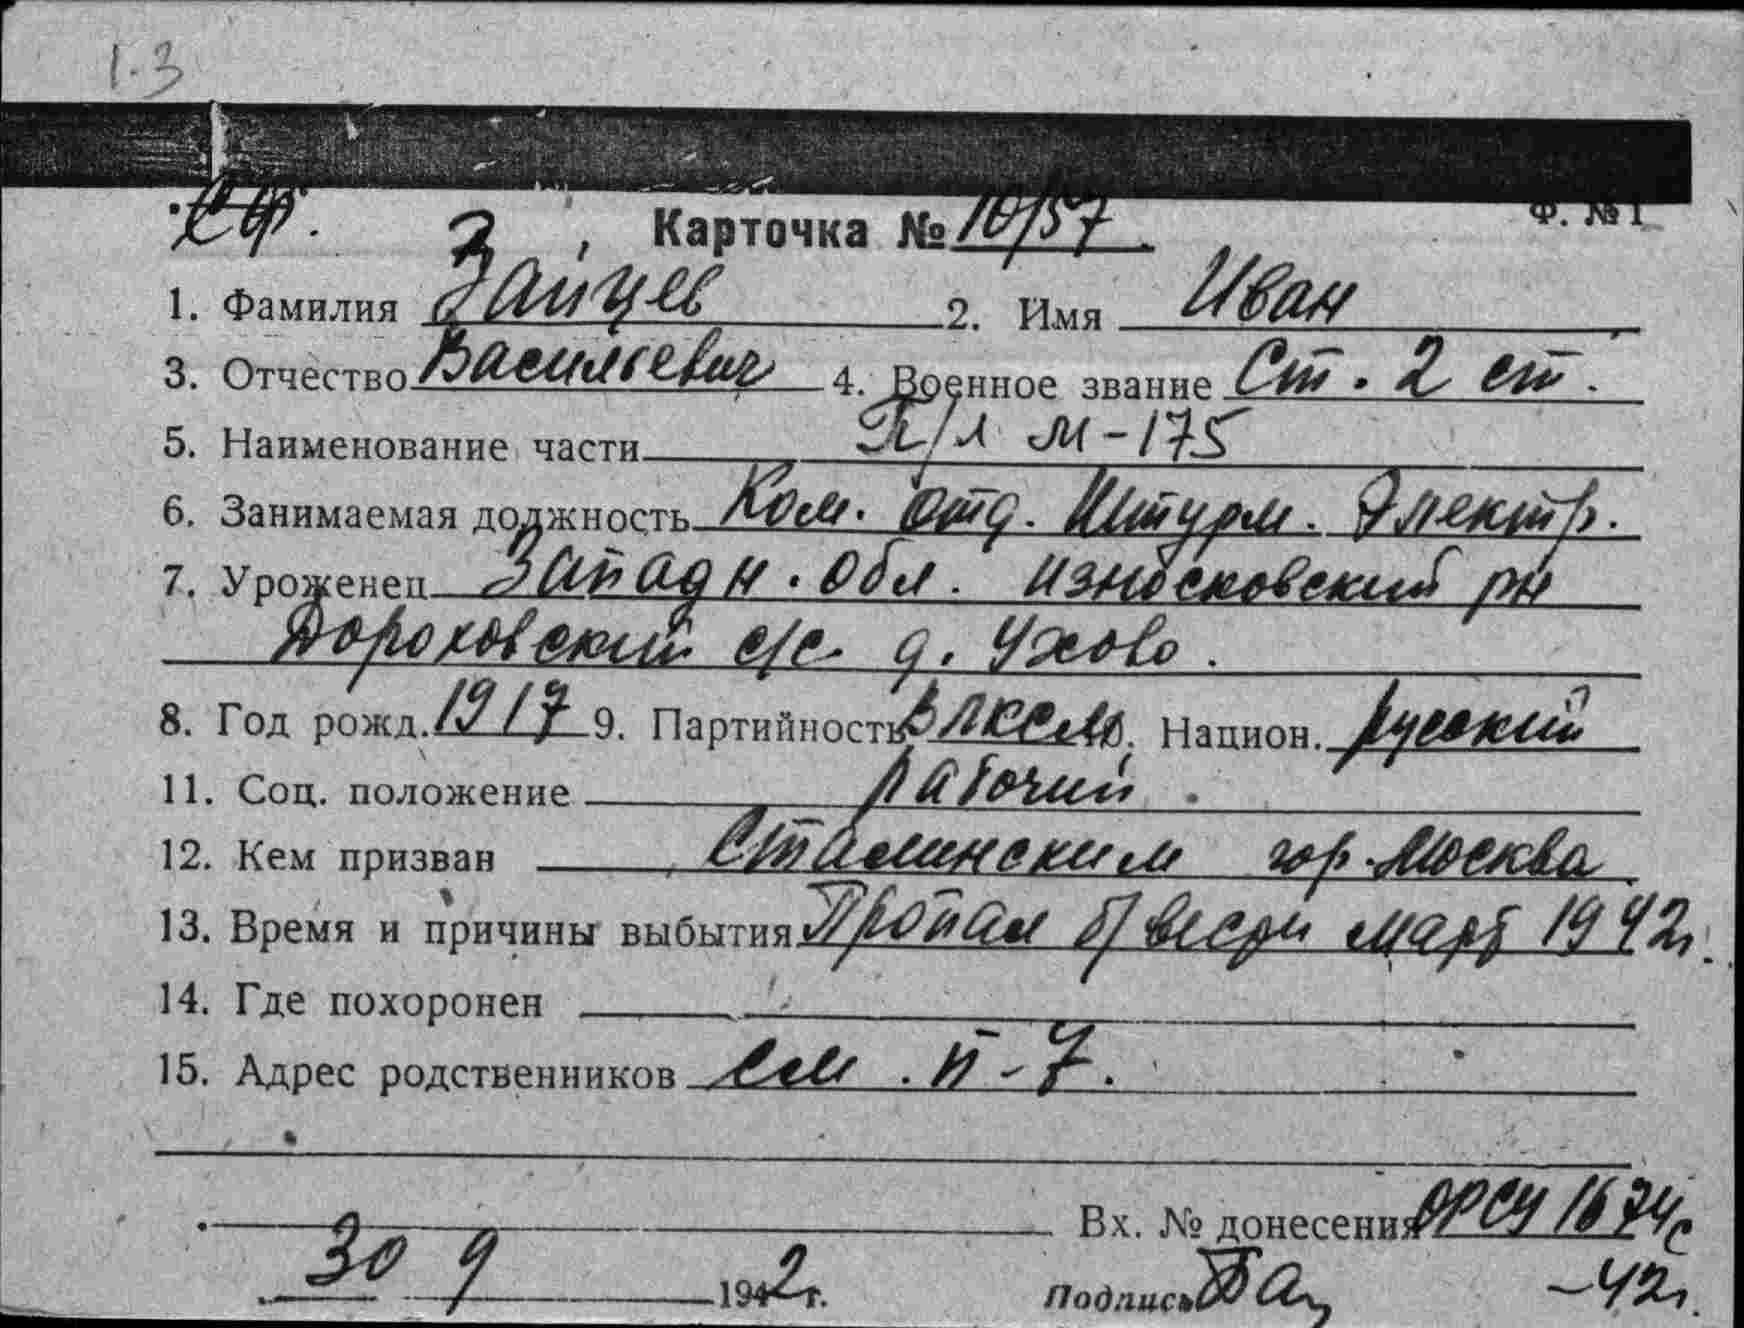 1.3
Ф. №1
С.Ф. З , Карточка № 10/57.
1. Фамилия Зайцев 2. Имя Иван
3. Отчество Васильевич 4. Военное звание Ст. 2 ст.
5. Наименование части П/Л М-175
6. Занимаемая должность Ком. отд. Штурм. Электр.
7. Уроженец Западн. обл. Износковский рн
Дороховский с/с. д. Ухово.
8. Год рожд. 1917 9. Партийность ВЛКСМ 10. Национ. русский
11. Соц. положение рабочий.
12. Кем призван Сталинским гор. Москва
13. Время и причины выбытия Пропал б/вести март 1942г.
14. Где похоронен
15. Адрес родственников см. п-7.
Вх. № донесения ОРСУ 1674с
30 9 1942г. Подпись -42г.